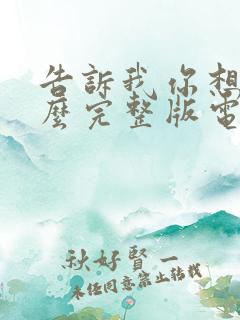 告訴我你想
麼完整版電
秋好賢一
未經同意禁止轉載